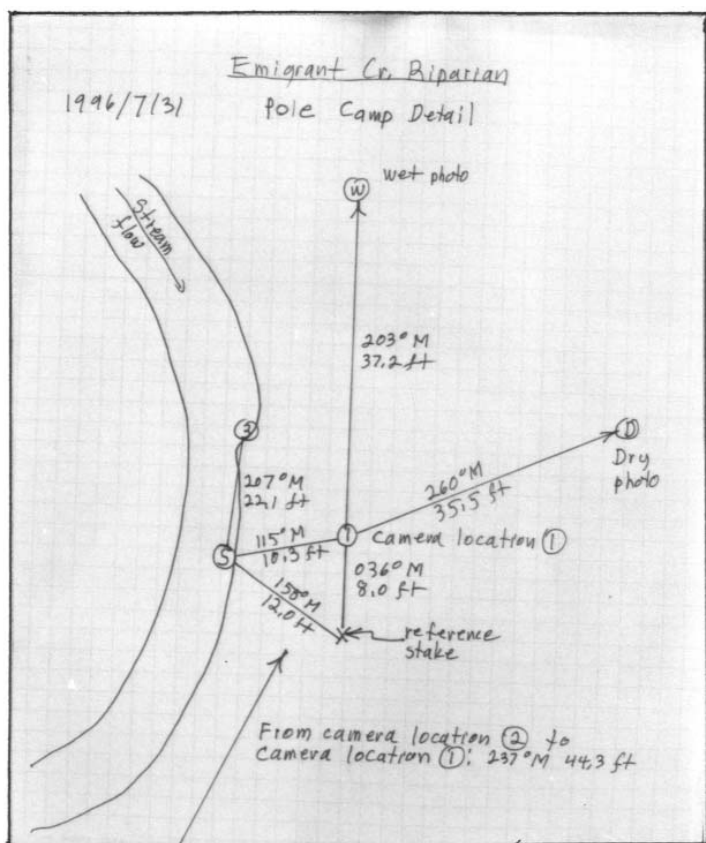 Emigrant Cr. Riparian
1996/7/31
Pole Camp Detail
W
wet photo
Stream
flow
203° M
37.2 ft
3
D
Dry
photo
207° M
22.1 ft
260° M
35.5 ft
115° M
10.3 ft
1
camera location ①
5
036° M
8.0 ft
158° M
12.0 ft
reference
stake
From camera location ② to
camera location ①: 237° M 44.3 ft